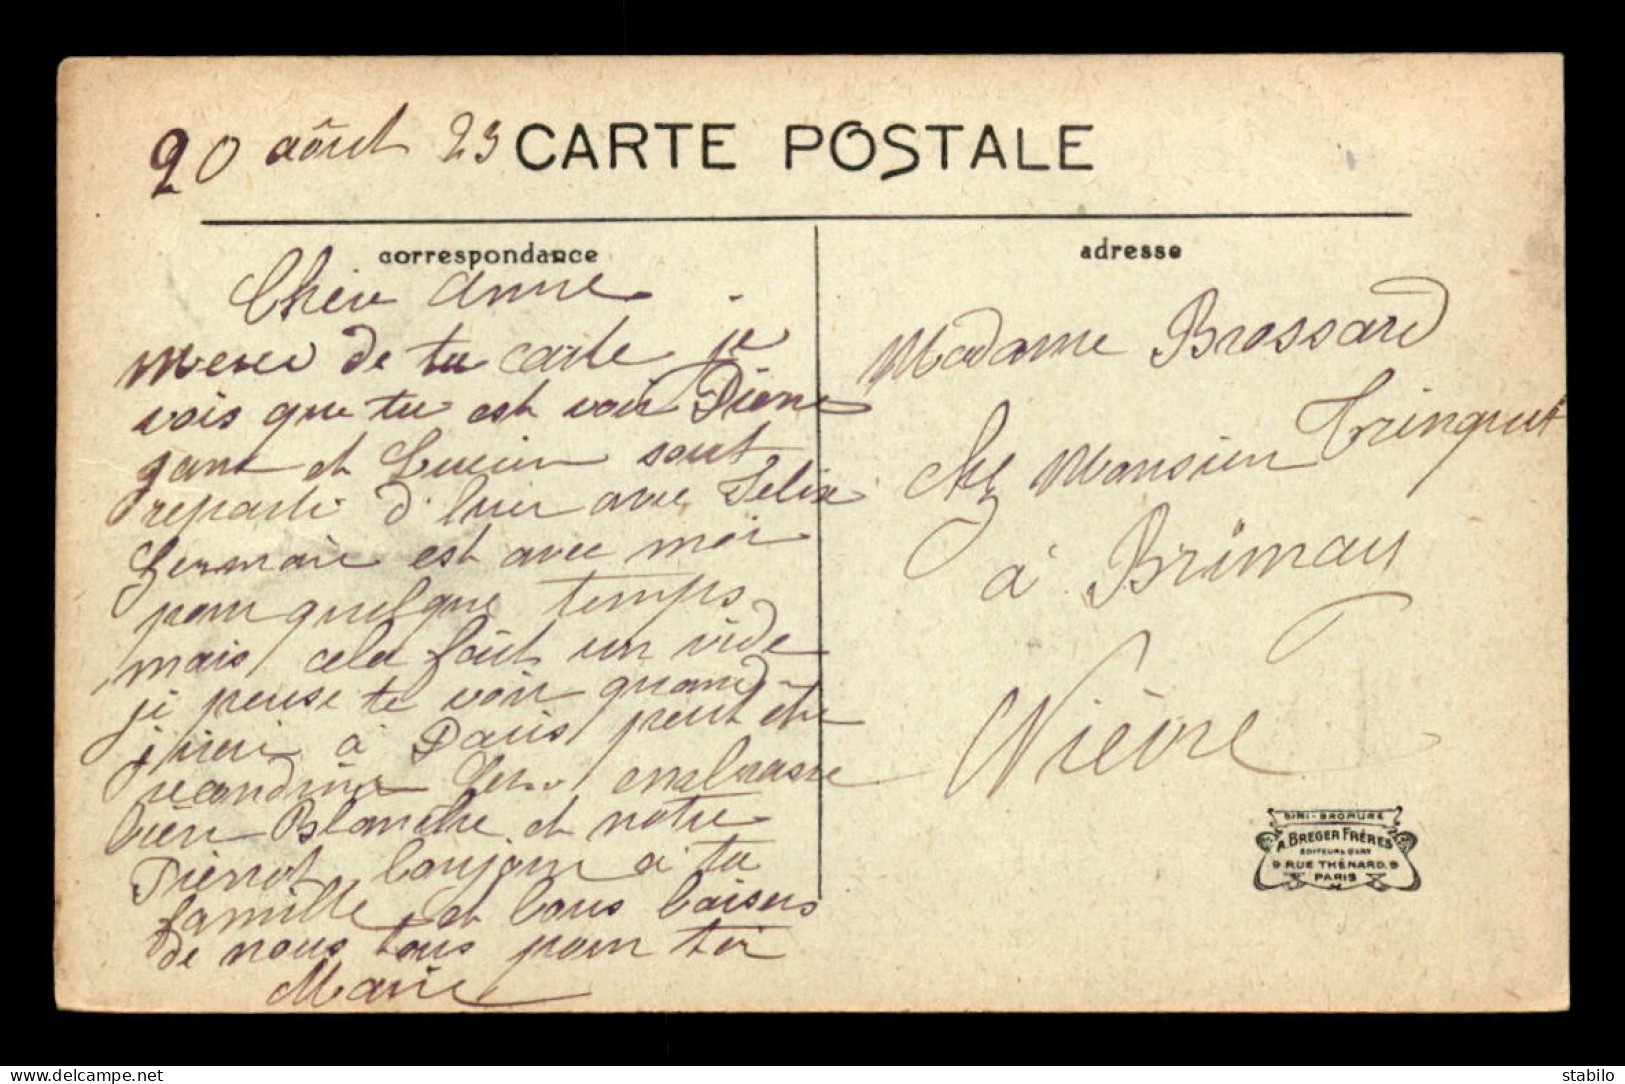 20 août 23 CARTE POSTALE
correspondance
Chère Anne
merci de ta carte je
vois que tu est voir Pierre
et Lucien sont
reparti d'hier avec Felix
Germaine est avec moi
pour quelque temps
mais cela fait un vide
je pense te voir quand
j'irai à Paris peut être
embrasse
bien Blanche et notre
Pierrot bonjour à ta
famille et bons baisers
de nous tous pour toi
Marie
adresse
Madame Brossard
chez Monsieur Tringuet
à Brimay
Nièvre
SIMI-BROMURE
A. BREGER FRÈRES
EDITEURS D'ART
9 RUE THÉNARD, 9
PARIS
stabilo